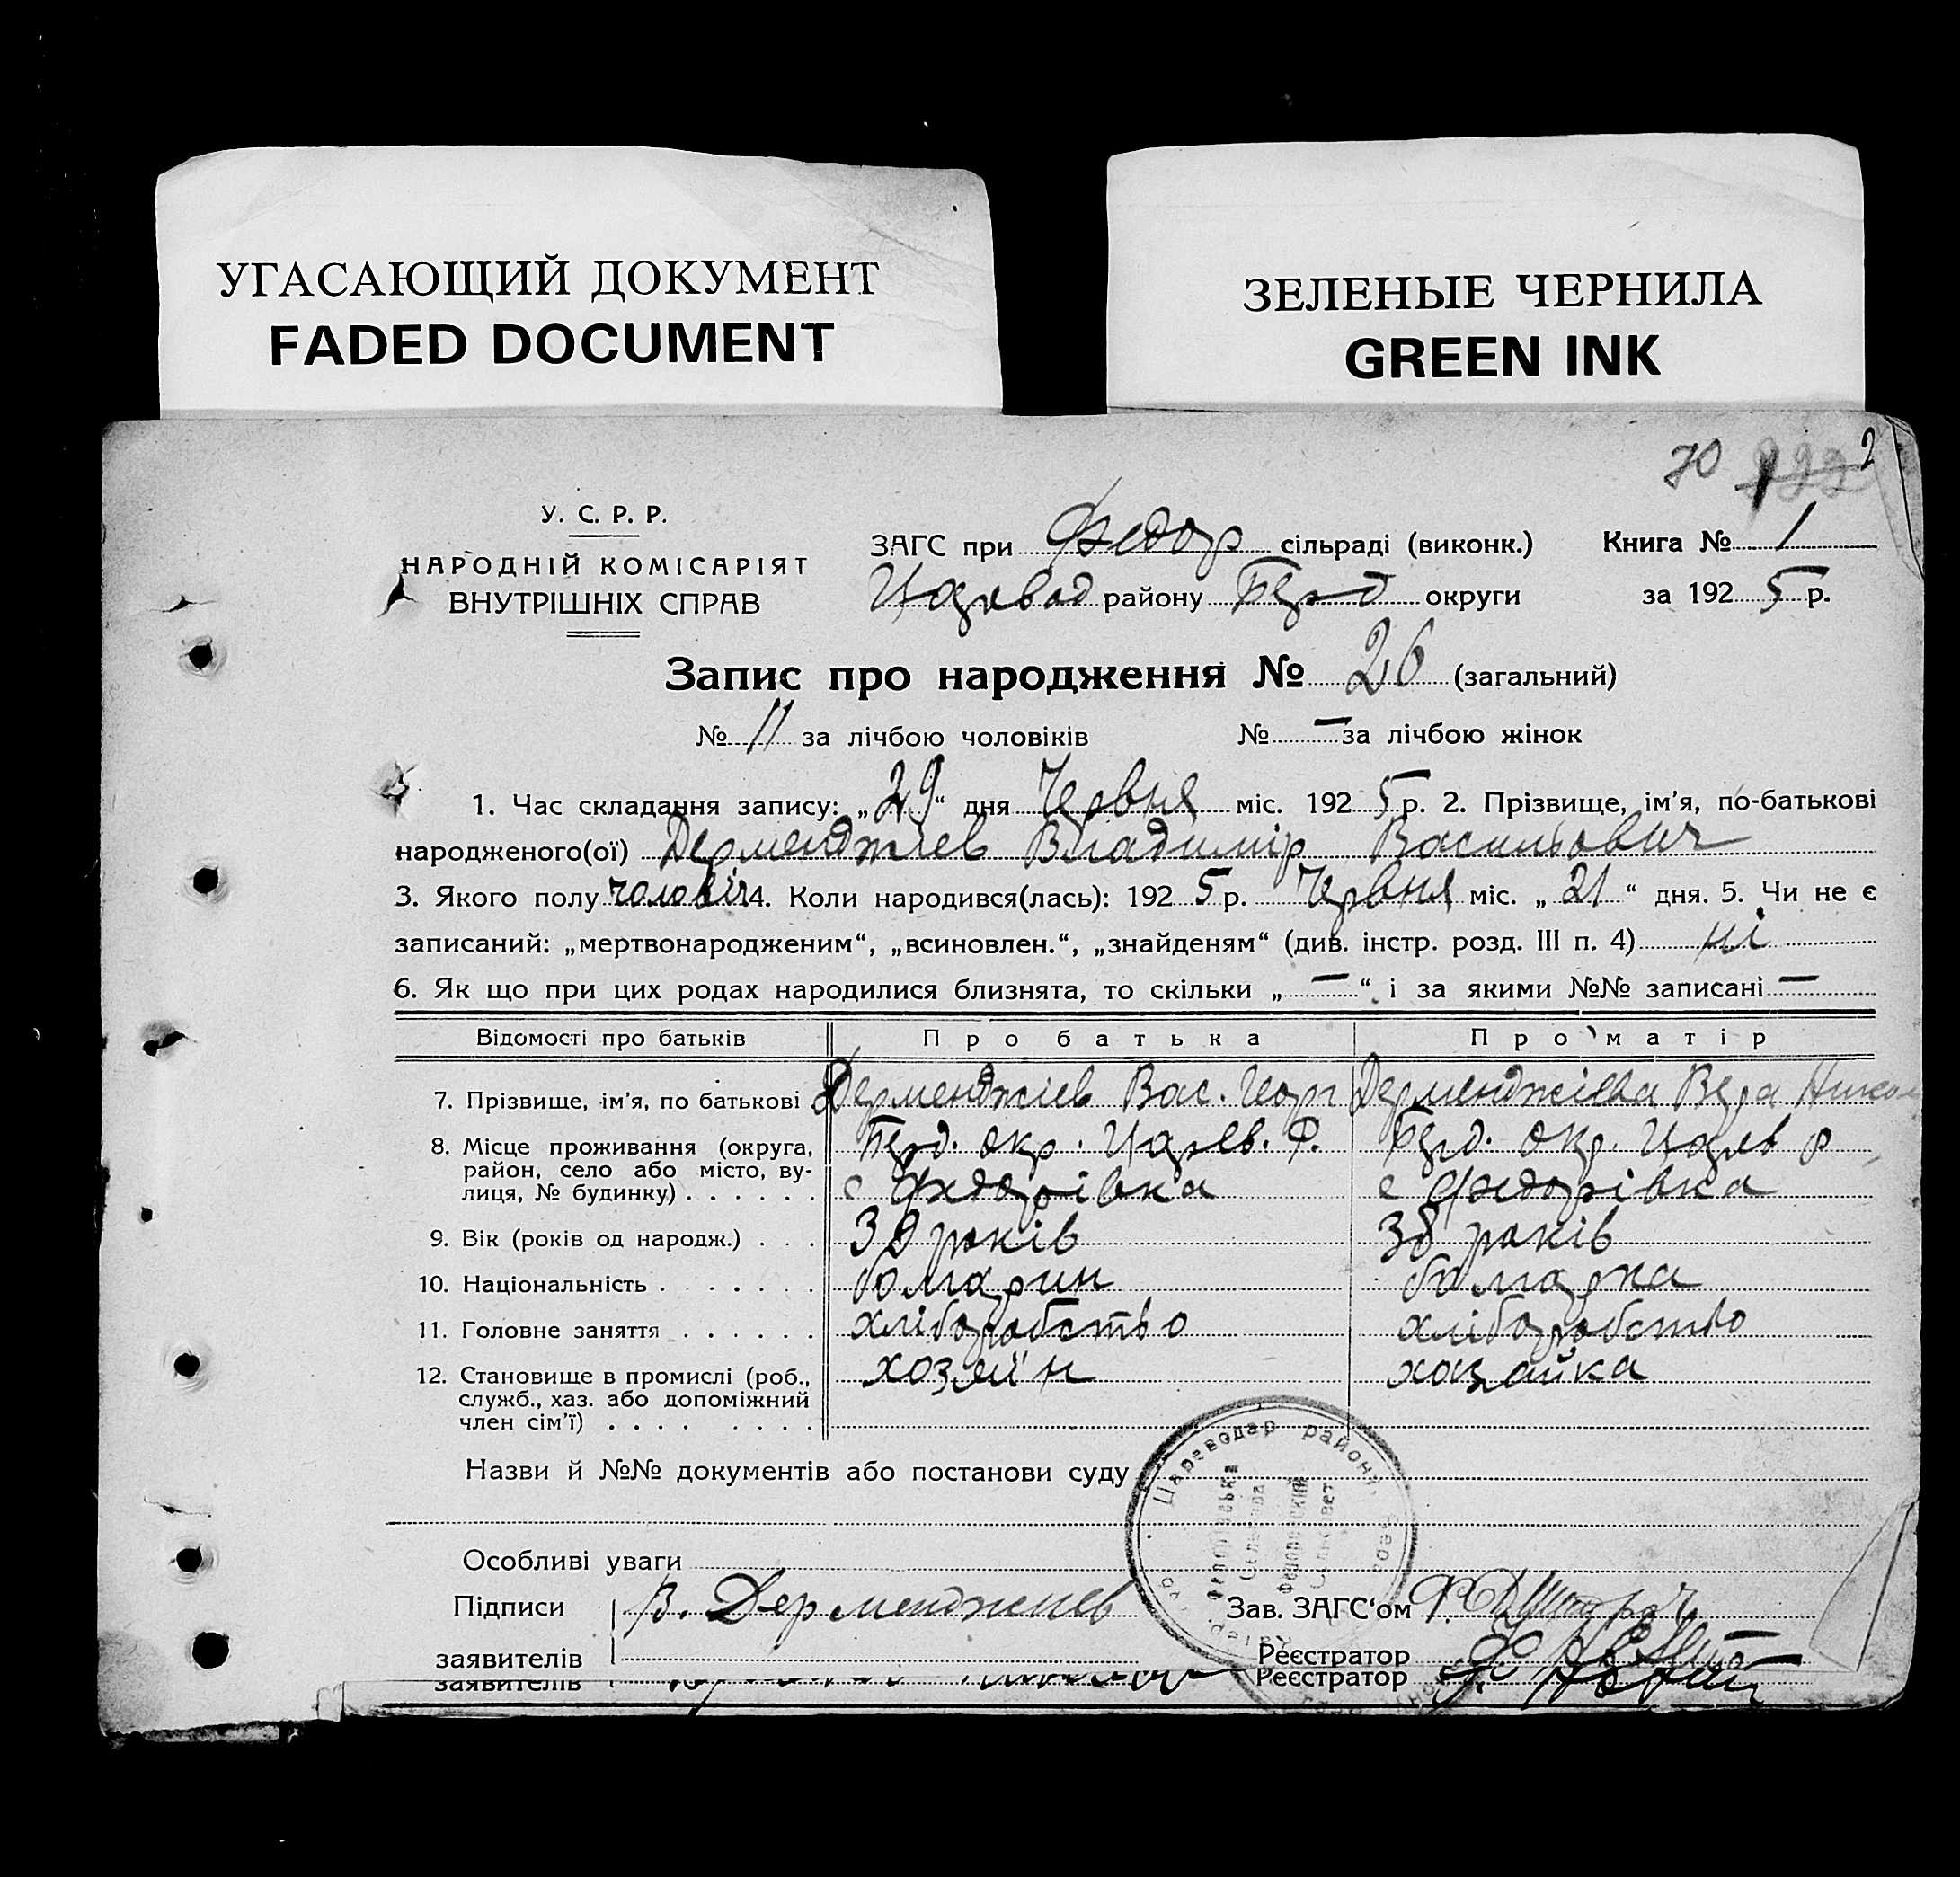 УГАСАЮЩИЙ ДОКУМЕНТ
FADED DOCUMENT
ЗЕЛЕНЫЕ ЧЕРНИЛА
GREEN INK
70
2
У. С. Р. Р.
НАРОДНІЙ КОМІСАРІЯТ
ВНУТРІШНІХ СПРАВ
ЗАГС при Федор сільраді (виконк.) Книга № 1
Царевод району Берд округи за 1925 р.
Запис про народження № 26 (загальний)
№ 11 за лічбою чоловіків № — за лічбою жінок
1. Час складання запису: „29“ дня Червня міс. 1925 р. 2. Прізвище, ім'я, по-батькові
народженого(ої) Дерменджиев Владимір Васильович
3. Якого полу чоловіч 4. Коли народився(лась): 1925 р. Червня міс. „21“ дня. 5. Чи не є
записаний: „мертвонародженим“, „всиновлен.“, „знайденям“ (див. інстр. розд. III п. 4) ні
6. Як що при цих родах народилися близнята, то скільки „—“ і за якими №№ записані —
Відомості про батьків Про батька Про матір
7. Прізвище, ім'я, по батькові Дерменджіев Вас. Георг Дерменджіева Вера Никол
8. Місце проживання (округа, Берд. окр. Царев. Р. Берд. окр. Царев р
район, село або місто, ву-
лиця, № будинку) . . . . . . с Федорівка с Федорівка
9. Вік (років од народж.) . . . 39 років 38 років
10. Національність . . . . . . болгарин болгарка
11. Головне заняття . . . . . . хліборобство хліборобство
12. Становище в промислі (роб., хозяїн хозяйка
служб., хаз. або допоміжний
член сім'ї) . . . . . . . .
Назви й №№ документів або постанови суду
Цареводар району
Федорівська
Сельрада
Федоровский
Сельсовет
Особливі уваги
Підписи В. Дерменджиев Зав. ЗАГС'ом
заявителів Реєстратор
заявителів Реєстратор